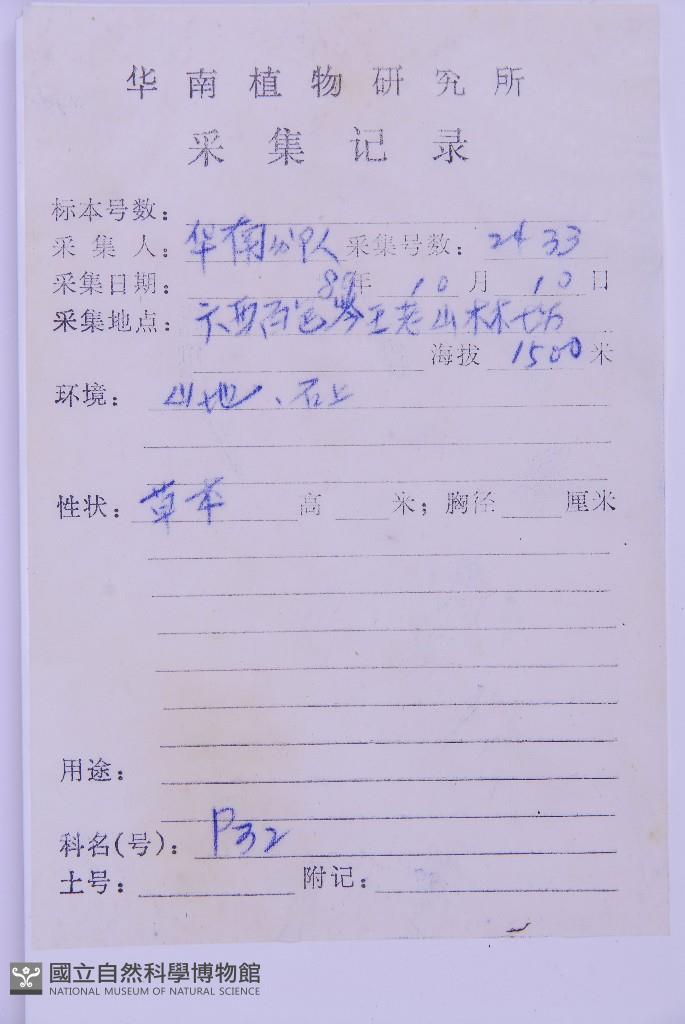 华南植物研究所
采集记录
标本号数:
采集人: 华南 采集号数: 2433
采集日期: 89年 10月 10日
采集地点: 广西百色岑王老山林场
海拔 1500 米
环境: 山地、石上
性状: 草本 高 米; 胸径 厘米
用途:
科名(号): P32
土号: 附记:
國立自然科學博物館
NATIONAL MUSEUM OF NATURAL SCIENCE